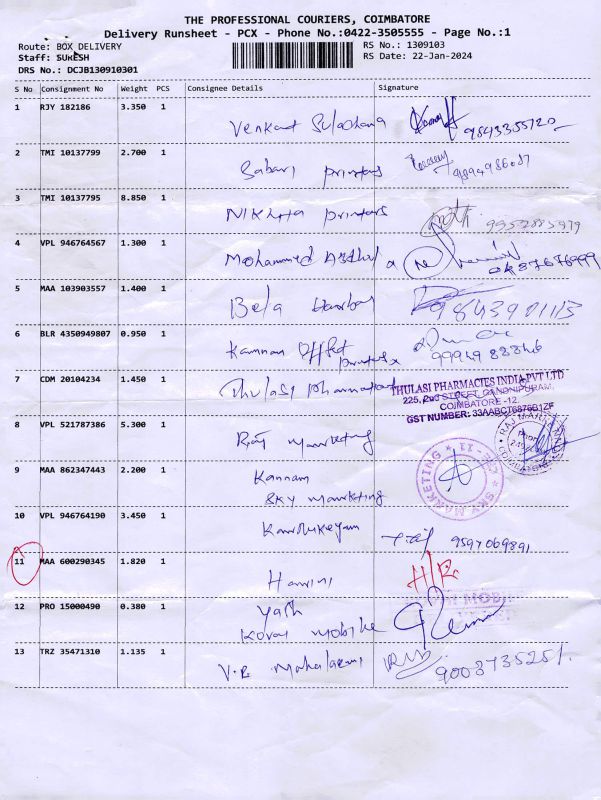 THE PROFESSIONAL COURIERS, COIMBATORE
Delivery Runsheet - PCX - Phone No.:0422-3505555 - Page No.:1
Route: BOX DELIVERY
RS No.: 1309103
Staff: SURESH
RS Date: 22-Jan-2024
DRS No.: DCJB130910301
S No Consignment No Weight PCS Consignee Details Signature
1 RJY 182186 3.350 1 Venkat 9843355720
2 TMI 10137799 2.700 1 Sabari printers
3 TMI 10137795 8.850 1 Nikhita printers
4 VPL 946764567 1.300 1 Mohammed
5 MAA 103903557 1.400 1 Bela
6 BLR 4350949807 0.950 1 Kannan Offset
printers
7 CDM 20104234 1.450 1 Thulasi pharma
THULASI PHARMACIES INDIA PVT LTD
225, 2nd STREET, GANDHIPURAM,
COIMBATORE -12.
GST NUMBER: 33AABCT6876B1ZF
8 VPL 521787386 5.300 1 Raj marketing
9 MAA 862347443 2.200 1 Kannan
SKY marketing
SKY MARKETING
10 VPL 946764190 3.450 1 9597069891
11 MAA 600290345 1.820 1 Harini
12 PRO 15000490 0.380 1 Yash
Kovai mobile
13 TRZ 35471310 1.135 1 V.R mahalaxmi 9003735251